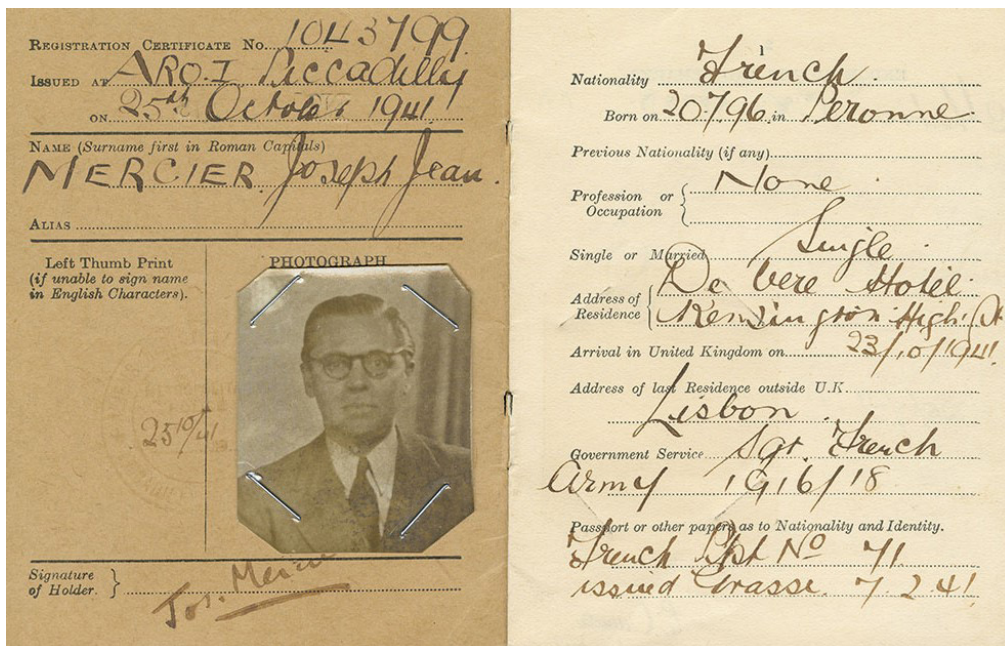 REGISTRATION CERTIFICATE No. 1043799
ISSUED AT ARO.I Piccadilly
ON 25th October 1941
NAME (Surname first in Roman Capitals)
MERCIER. Joseph Jean.
ALIAS
Left Thumb Print
(if unable to sign name
in English Characters).
PHOTOGRAPH
25/10/41
Signature
of Holder.
Jos. Mercier
1
Nationality French.
Born on 20.7.96. in Peronne.
Previous Nationality (if any)
Profession or
Occupation
None.
Single or Married Single.
Address of
Residence
De Vere Hotel.
Kensington High. St
Arrival in United Kingdom on 23/10/1941.
Address of last Residence outside U.K.
Lisbon.
Government Service Sgt. French
Army 1916/18
Passport or other papers as to Nationality and Identity.
French Ppt No 71.
issued Grasse. 7.2.41.